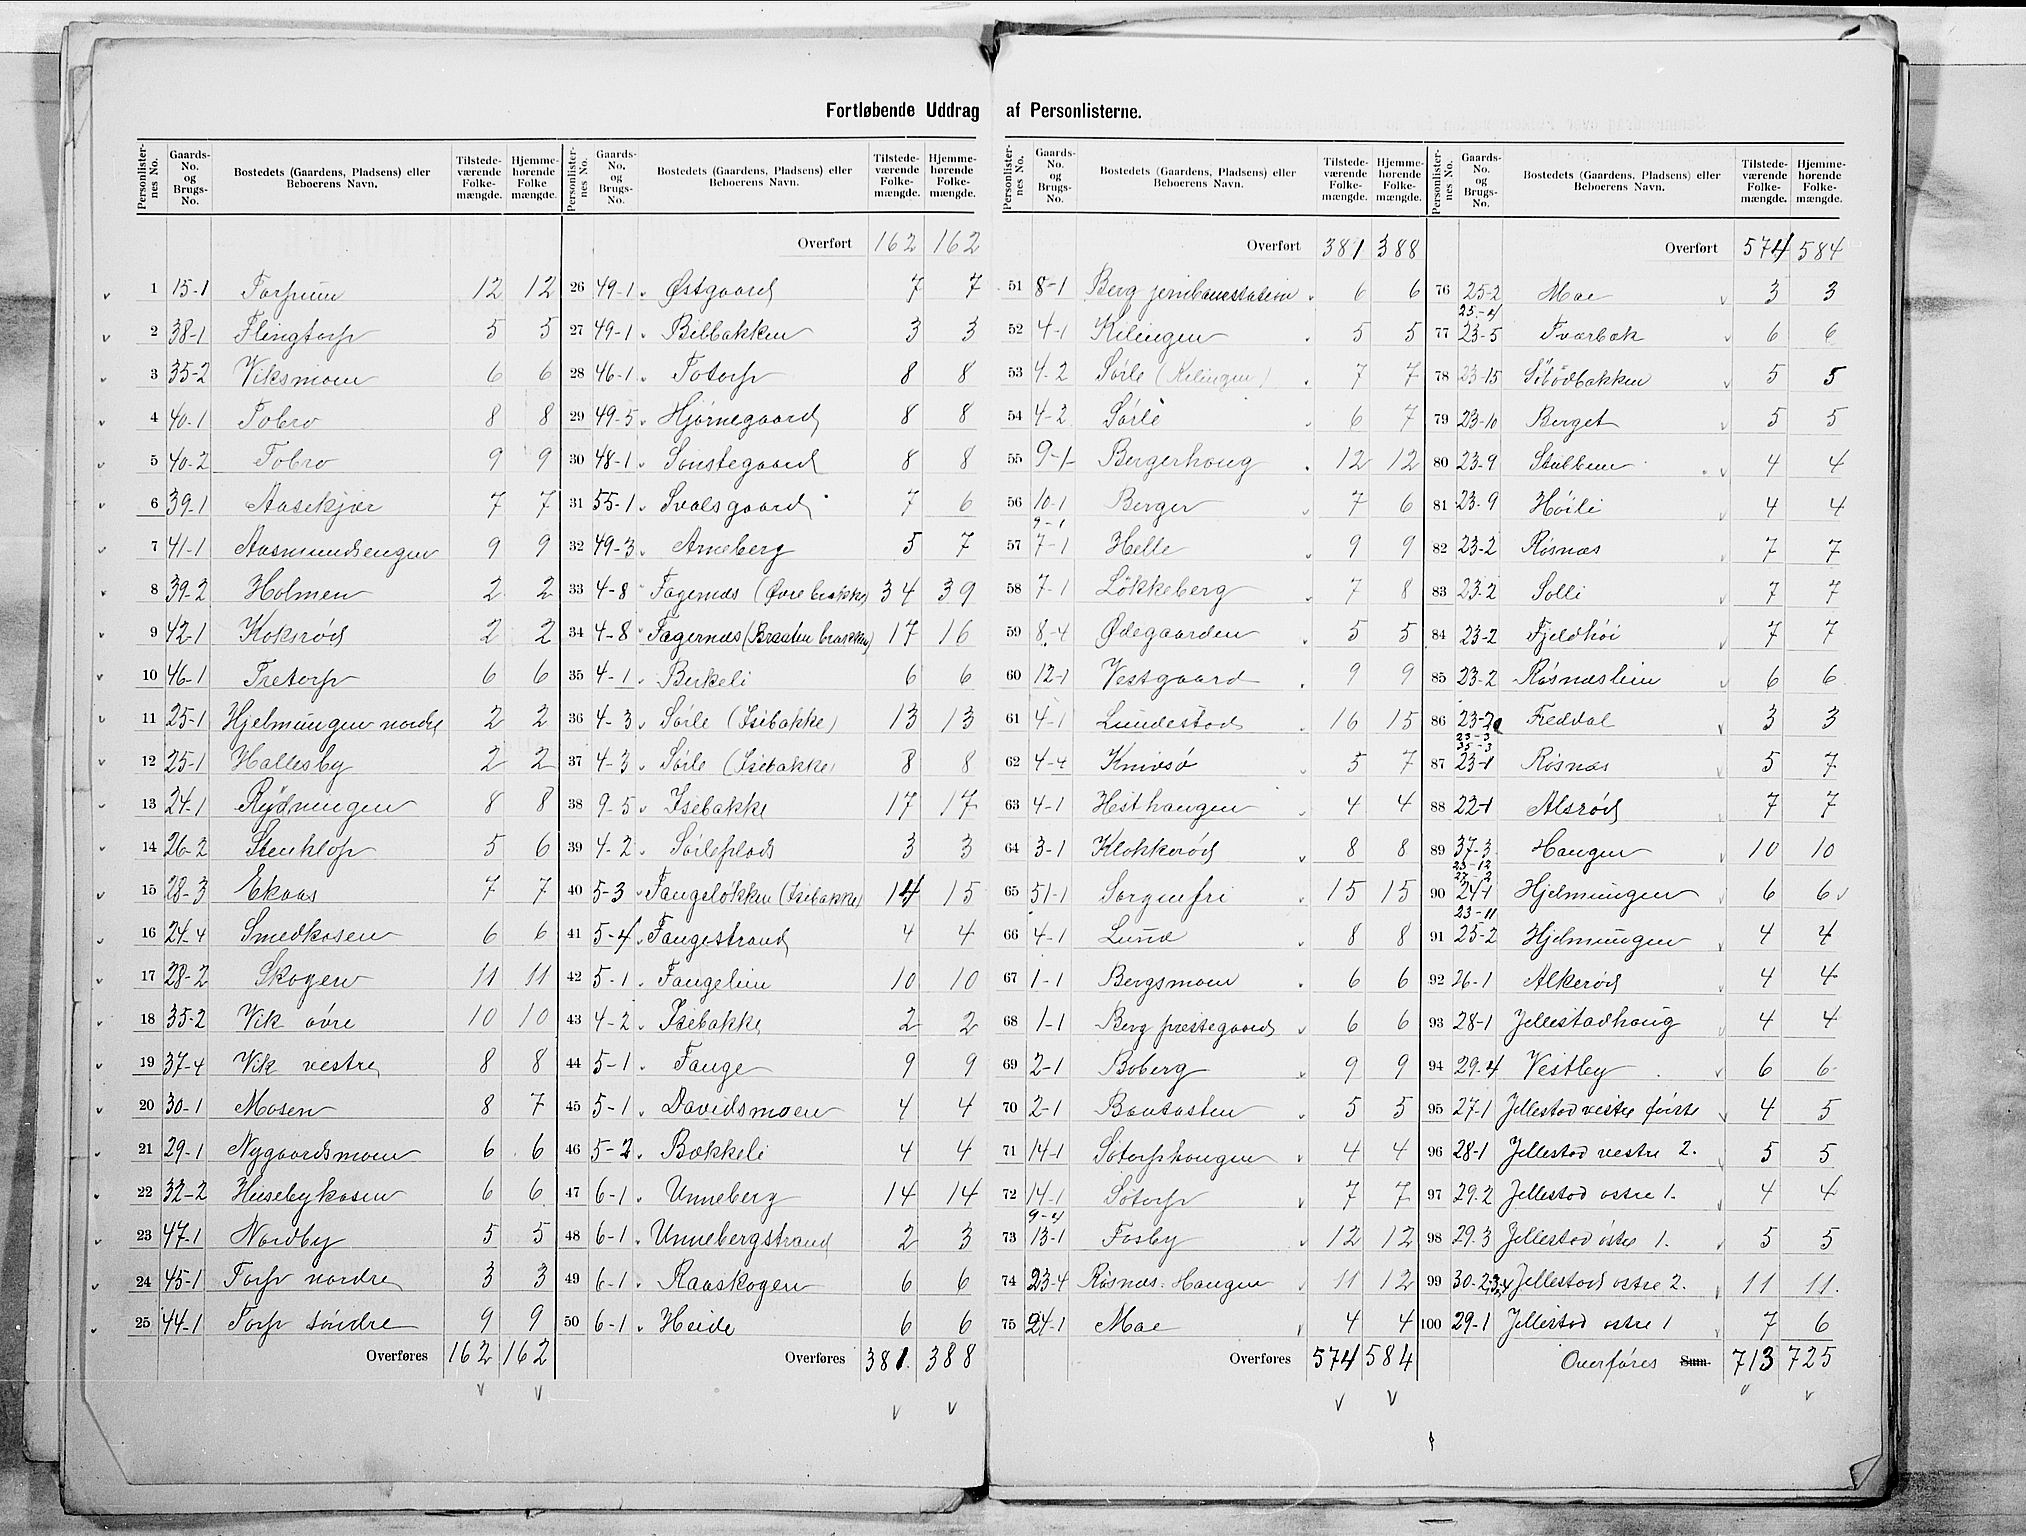 Fortløbende Uddrag af Personlisterne.
Personlisternes No. | Gaards-No. og Brugs-No. | Bostedets (Gaardens, Pladsens) eller Beboerens Navn. | Tilstedeværende Folkemængde. | Hjemmehørende Folkemængde.
1 15-1 Torpum 12 12
2 38-1 Flingtorp 5 5
3 35-2 Viksmoen 6 6
4 40-1 Tobro 8 8
5 40-2 Tobro 9 9
6 39-1 Aasekjær 7 7
7 41-1 Aasmundsengen 9 9
8 39-2 Holmen 2 2
9 42-1 Koksrød 2 2
10 46-1 Tretorp 6 6
11 25-1 Hjelmungen nordre 2 2
12 25-1 Hallesby 2 2
13 24-1 Rydningen 8 8
14 26-2 Stenklop 5 6
15 28-3 Ekaas 7 7
16 24-4 Smedkasen 6 6
17 28-2 Skogen 11 11
18 35-2 Vik øvre 10 10
19 37-4 Vik vestre 8 8
20 30-1 Mosen 8 7
21 29-1 Nygaardsmoen 6 6
22 32-2 Husebykasen 6 6
23 47-1 Nordby 5 5
24 45-1 Torp nordre 3 3
25 44-1 Torp søndre 9 9
Overføres 162 162
Personlisternes No. | Gaards-No. og Brugs-No. | Bostedets (Gaardens, Pladsens) eller Beboerens Navn. | Tilstedeværende Folkemængde. | Hjemmehørende Folkemængde.
Overført 162 162
26 49-1 Østgaard 7 7
27 49-1 Bilbakken 3 3
28 46-1 Totorp 8 8
29 49-5 Hjørnegaard 8 8
30 48-1 Sønstegaard 8 8
31 55-1 Svalsgaard 7 6
32 49-3 Arneberg 5 7
33 4-8 Fagernæs (Øvre brakke) 34 39
34 4-8 Fagernæs (Braaten brakken) 17 16
35 4-1 Birkeli 6 6
36 4-3 Sørle (Isebakke) 13 13
37 4-3 Sørle (Isebakke) 8 8
38 9-5 Isebakke 17 17
39 4-2 Sørleplads 3 3
40 5-3 Fangeløkken (Isebakke) 14 15
41 5-4 Fangestrand 4 4
42 5-1 Fangelien 10 10
43 4-2 Isebakke 2 2
44 5-1 Fange 9 9
45 5-1 Davidsmoen 4 4
46 5-2 Bækkeli 4 4
47 6-1 Unneberg 14 14
48 6-1 Unnebergstrand 2 3
49 6-1 Raaskogen 6 6
50 6-1 Heide 6 6
Overføres 381 388
Personlisternes No. | Gaards-No. og Brugs-No. | Bostedets (Gaardens, Pladsens) eller Beboerens Navn. | Tilstedeværende Folkemængde. | Hjemmehørende Folkemængde.
Overført 381 388
51 8-1 Berg jernbanestation 6 6
52 4-1 Kilingen 5 5
53 4-2 Sørle (Kilingen) 7 7
54 4-2 Sørle 6 7
55 9-1 Bergerhoug 12 12
56 10-1 Berger 7 6
9-1
57 7-1 Helle 9 9
58 7-1 Løkkeberg 7 8
59 8-4 Ødegaarden 5 5
60 12-1 Vestgaard 9 9
61 4-1 Lundestad 16 15
62 4-4 Knivsø 5 7
63 4-1 Hesthaugen 4 4
64 3-1 Klokkerød 8 8
65 51-1 Sorgenfri 15 15
66 4-1 Lund 8 8
67 1-1 Bergsmoen 6 6
68 1-1 Berg prestegaard 6 6
69 2-1 Boberg 9 9
70 2-1 Bautasten 5 5
71 14-1 Søtorphaugen 4 4
72 14-1 Søtorp 7 7
9-4
73 13-1 Fosby 12 12
74 23-4 Røsnæs. Haugen 11 12
75 24-1 Moe 4 4
Overføres 574 584
Personlisternes No. | Gaards-No. og Brugs-No. | Bostedets (Gaardens, Pladsens) eller Beboerens Navn. | Tilstedeværende Folkemængde. | Hjemmehørende Folkemængde.
Overført 574 584
76 25-2 Moe 3 3
25-4
77 23-5 Tværbæk 6 6
78 23-15 5 5
79 23-10 Berget 5 5
80 23-9 Stubben 4 4
81 23-9 Høili 4 4
82 23-2 Røsnæs 7 7
83 23-2 Solli 7 7
84 23-2 Fjeldhøi 7 7
85 23-2 Røsnæslien 6 6
86 23-2 Freddal 3 3
23-3
35-3
87 23-1 Røsnæs 5 7
88 22-1 Alsrød 7 7
89 37-3 Haugen 10 10
23-12
27-2
90 24-1 Hjelmungen 6 6
23-11
91 25-2 Hjelmungen 4 4
92 26-1 Alkerød 4 4
93 28-1 Jellestadhaug 4 4
94 29.4 Vestby 6 6
95 27-1 Jellestad vestre første 4 5
96 28-1 Jellestad vestre 2. 5 5
97 29.2 Jellestad østre 1. 4 4
98 29.3 Jellestad østre 1. 5 5
99 30-2,3,4 Jellestad østre 2. 11 11.
100 29-1 Jellestad østre 1 7 6
Overføres Sum 713 725